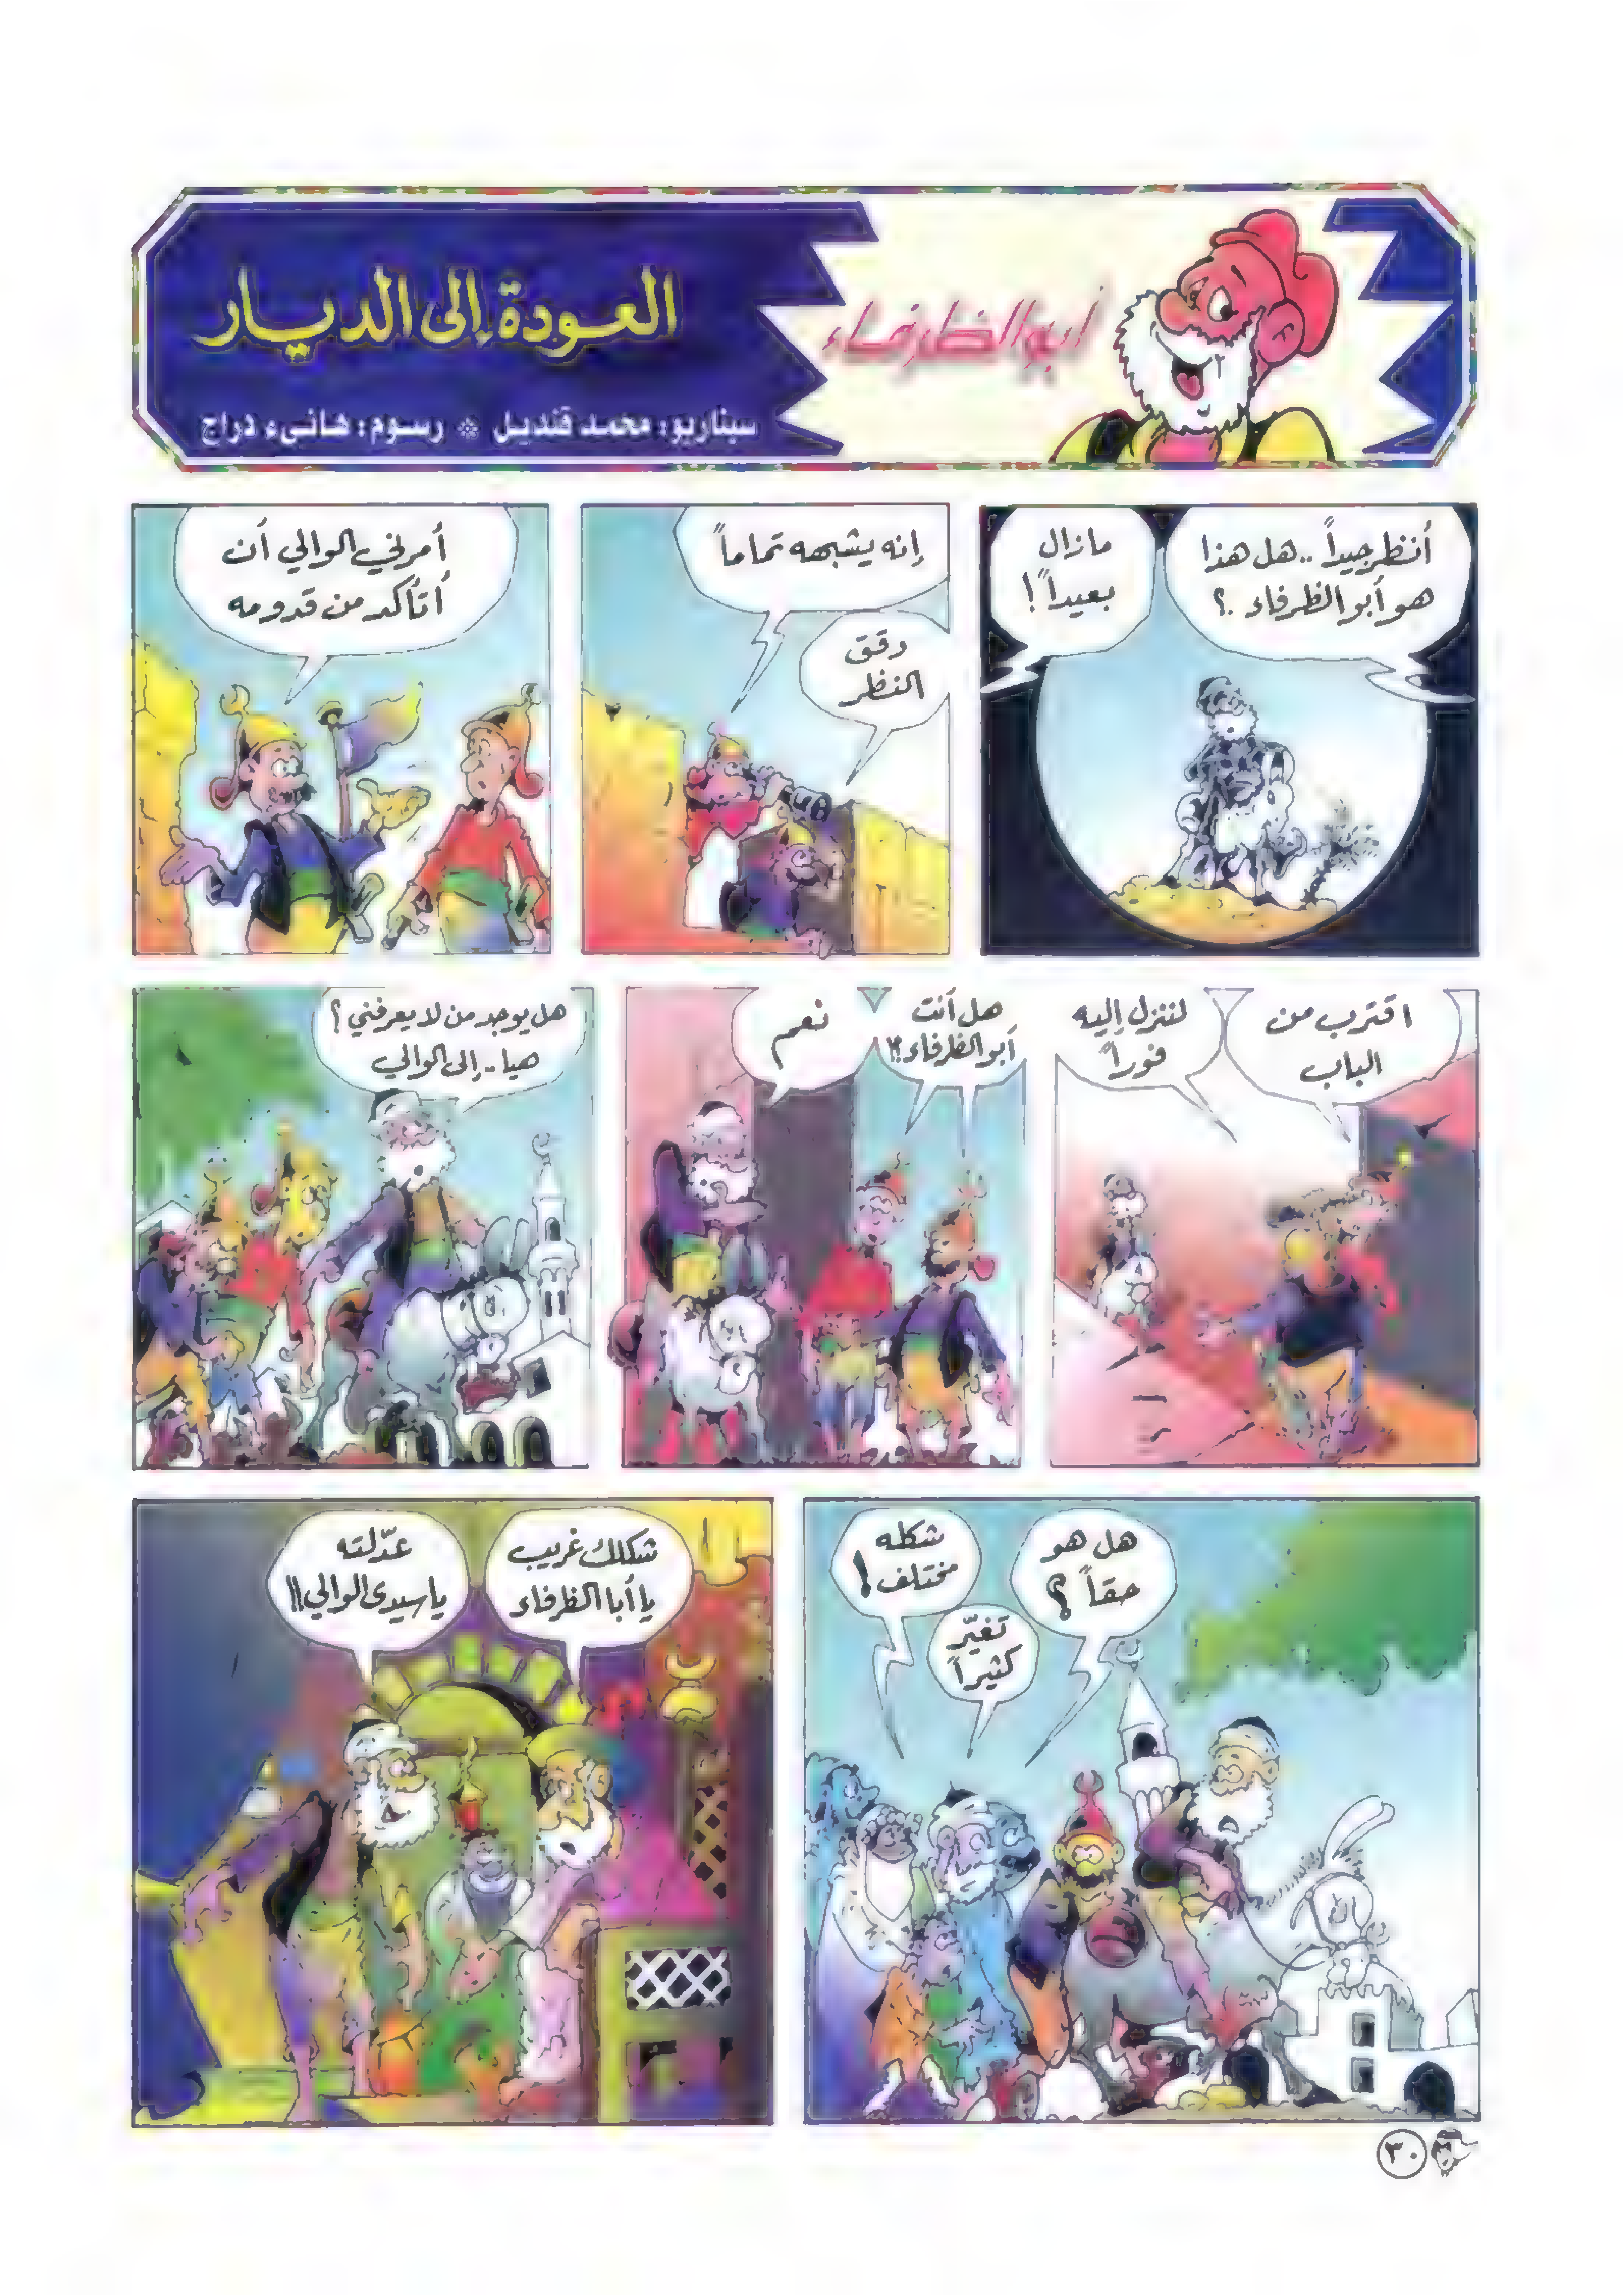 أبو الظرفاء
العودة إلى الديار
سيناريو: محمد قنديل * رسوم: هانىء دراج
أنظر جيداً.. هل هذا
هو أبو الظرفاء.؟
مازال
بعيداً!
إنه يشبهه تماماً
دقق
النظر
أمرني الوالي أن
أتأكد من قدومه
اقترب من
الباب
لننزل إليه
فوراً
هل أنت
أبو الظرفاء؟!
نعم
هل يوجد من لا يعرفني؟
هيا.. إلى الوالي
هل هو
حقاً؟
تغيّر
كثيراً
شكله
مختلف!
شكلك غريب
يا أبا الظرفاء
عدّلته
يا سيدى الوالي!!
٣٠